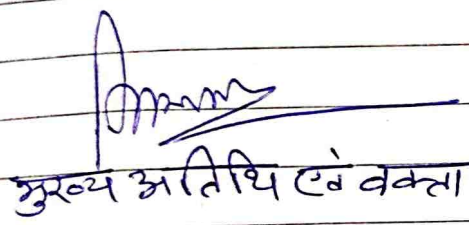 मुख्य अतिथि एवं वक्ता